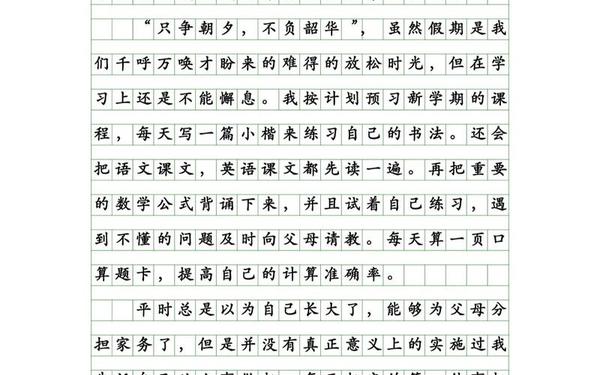 “只争朝夕，不负韶华”，虽然假期是我
们千呼万唤才盼来的难得的放松时光，但在学
习上还是不能懈息。我按计划预习新学期的课
程，每天写一篇小楷来练习自己的书法。还会
把语文课文，英语课文都先读一遍。再把重要
的数学公式背诵下来，并且试着自己练习，遇
到不懂的问题及时向父母请教。每天算一页口
算题卡，提高自己的计算准确率。
平时总是以为自己长大了，能够为父母分
担家务了，但是并没有真正意义上的实施过我